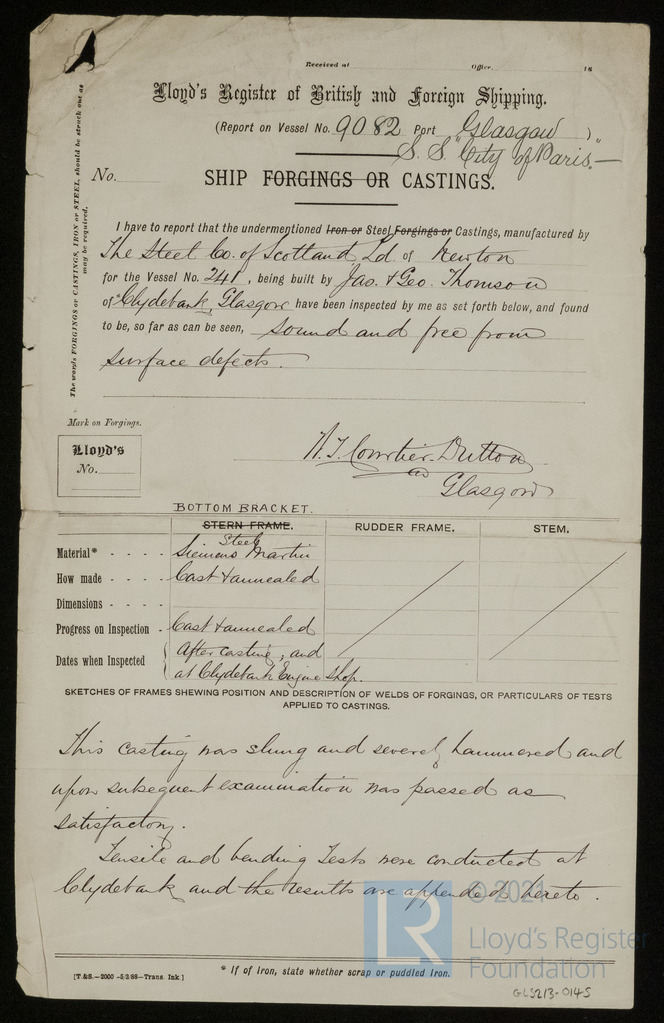 Received at Office. 18
Lloyd's Register of British and Foreign Shipping.
(Report on Vessel No. 9082 Port Glasgow)
S.S. "City of Paris" —
No.
SHIP FORGINGS OR CASTINGS.
The words FORGINGS or CASTINGS, IRON or STEEL, should be struck out as
may be required.
I have to report that the undermentioned Iron or Steel Forgings or Castings, manufactured by
The Steel Co. of Scotland Ld. of Newton
for the Vessel No. 241, being built by Jas. & Geo. Thomson
of Clydebank, Glasgow have been inspected by me as set forth below, and found
to be, so far as can be seen, sound and free from
surface defects.
Mark on Forgings.
Lloyd's
No.
Courtier-Dutton
Glasgow
BOTTOM BRACKET.
STERN FRAME. RUDDER FRAME. STEM.
Steel
Material* - - - - Siemens Martin
How made - - - - Cast & annealed
Dimensions - - - -
Progress on Inspection - Cast & annealed
Dates when Inspected { After casting, and
at Clydebank Engine Shop.
SKETCHES OF FRAMES SHEWING POSITION AND DESCRIPTION OF WELDS OF FORGINGS, OR PARTICULARS OF TESTS
APPLIED TO CASTINGS.
This casting was slung and severely hammered and
upon subsequent examination was passed as
satisfactory.
Tensile and bending Tests were conducted at
Clydebank and the results are appended hereto.
© 2021
LR
Lloyd's Register
Foundation
* If of Iron, state whether scrap or puddled Iron.
[T.&S.—2000—5/2/88—Trans. Ink]
GLS213-0145